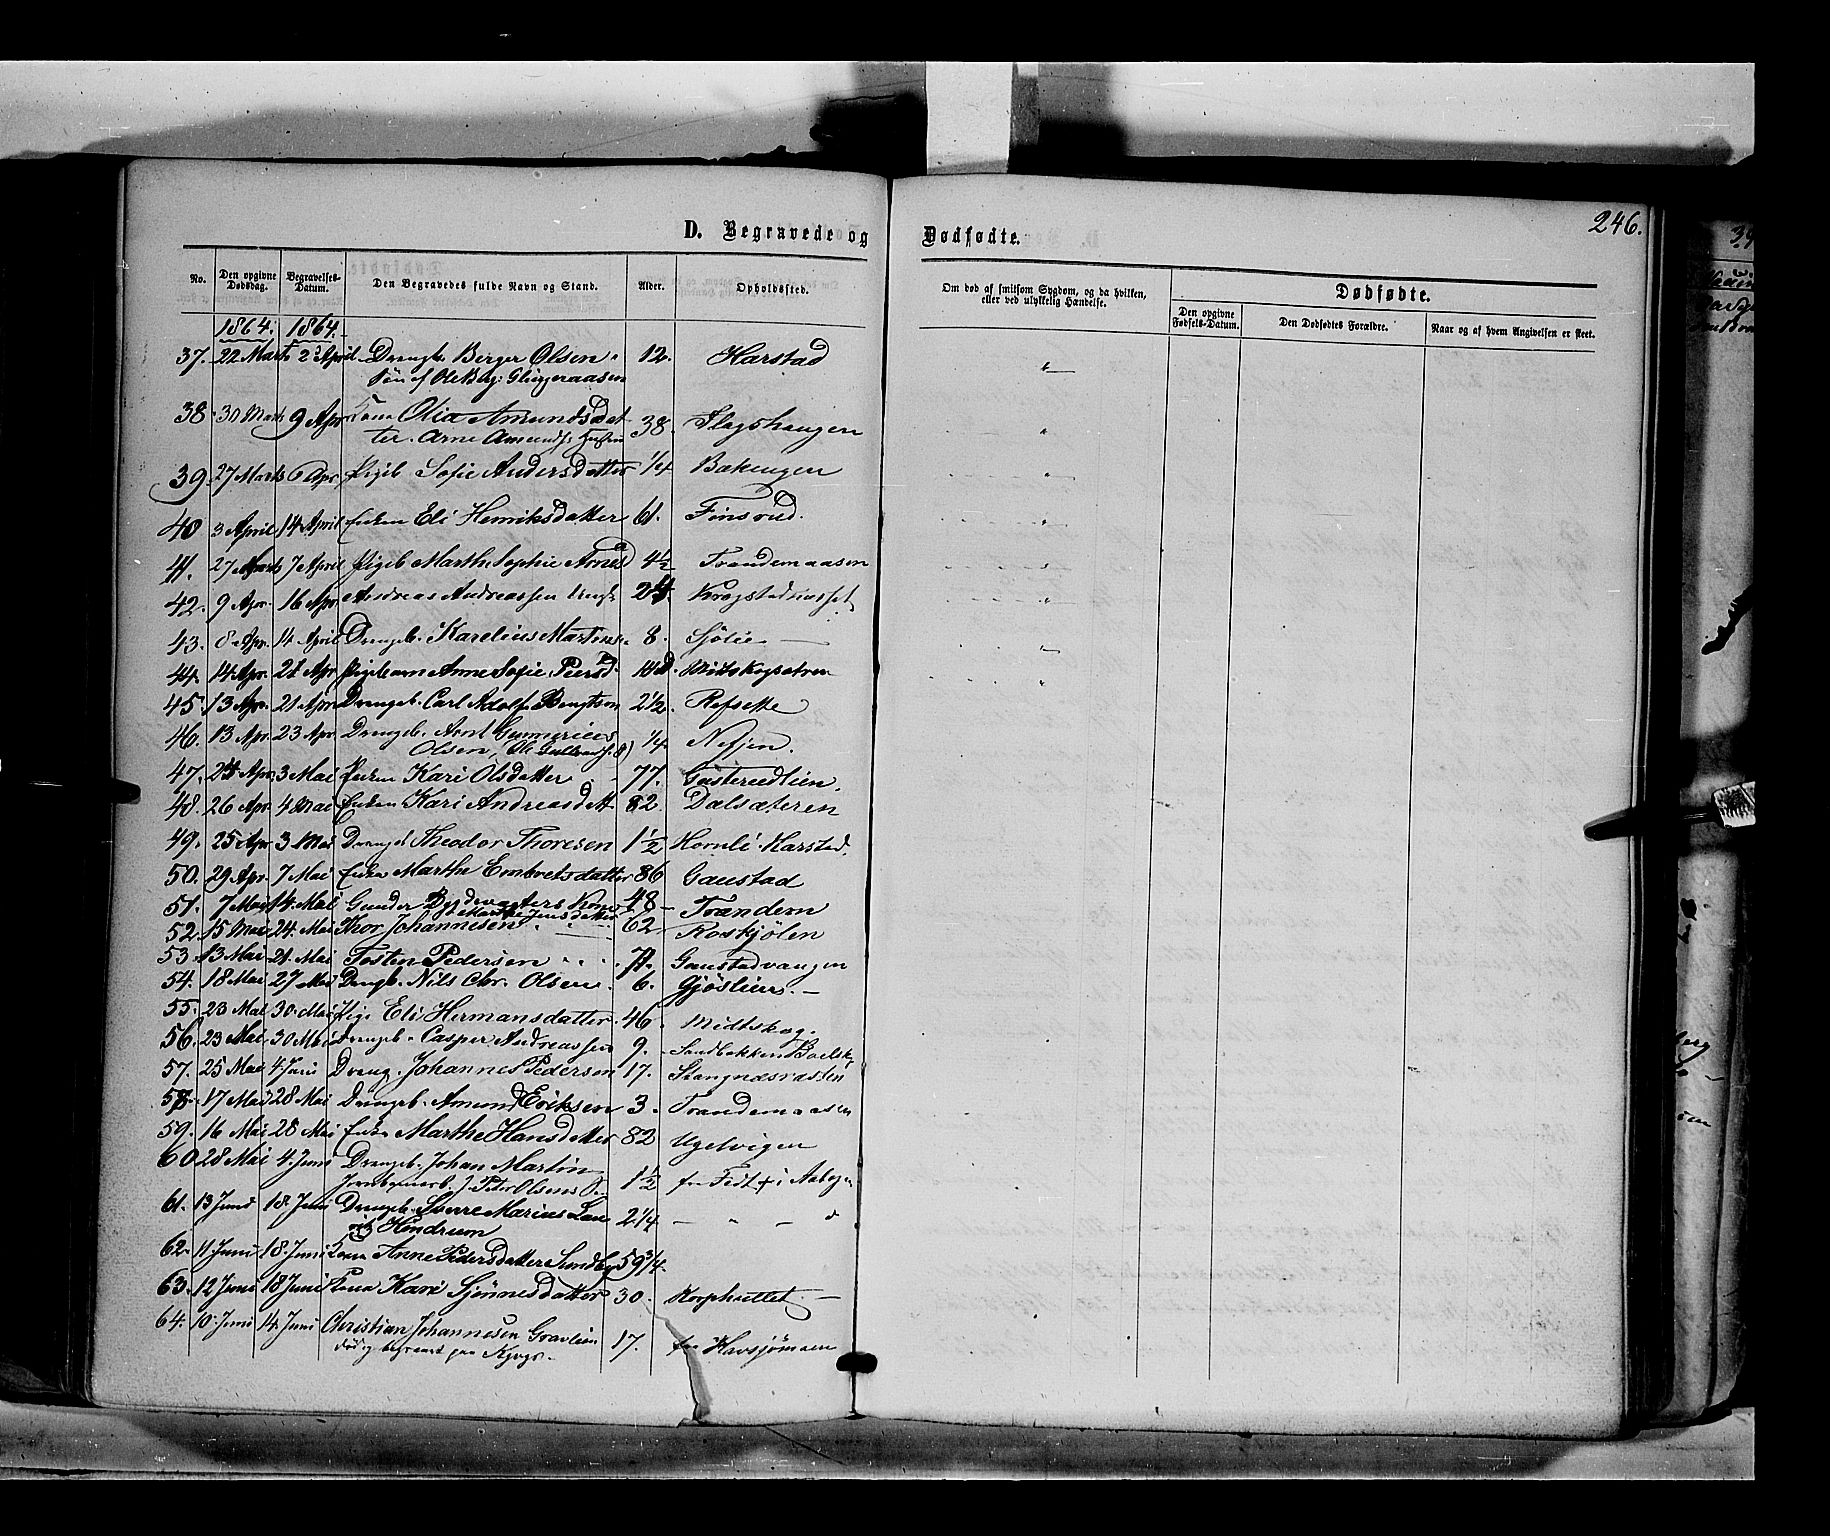 246.
D. Begravede og Dødfødte.
No. Den opgivne Dødsdag. Begravelses-Datum. Den Begravedes fulde Navn og Stand. Alder. Opholdssted.
Om død af smitsom Sygdom, og da hvilken, eller ved ulykkelig Hændelse. Dødfødte.
Den opgivne Fødsels-Datum. Den Dødfødtes Forældre. Naar og af hvem Angivelsen er skeet.
1864. 1864.
37. 22 Marts 2 April Drengb. Berger Olsen 12. Harstad
Søn af Ole
38 30 Marts 9 Apr Kona Olia Amundsdat- 38. Slagshaugen
ter. Arne Amunds:
39 27 Marts 6 Apr. Pigeb Sofie Andersdatter 1/4 Bakengen
40 3 April 14 April Enken Eli Henriksdatter 61. Finsrud.
41. 27 Marts 7 April Pigeb Marth. Sophie Arnesd 4½ Trandemaasen
42. 9 Apr. 16 Apr Andreas Andreassen
43. 8 Apr. 14 April Drengeb. Karelius Martins. 8. Sjölie
44. 14 Apr. 21 Apr Pigebarn Anne Sofie Peersd. Midtskogsætren
45. 13 Apr. 21 Apr Drengeb. Carl Adolf Bengtson 2½. Refsette
46. 13 Apr. 23 Apr Drengeb. Arnt Gunerius 1/4. Nefjen.
Olsen,
47. 24 Apr 3 Mai Enken Kari Olsdatter 77. Gusterudlien.
48. 26 Apr. 4 Mai Enken Kari Andreasdatt 82. Dalsæteren
49. 25 Apr 3 Mai Drengeb Theodor Thoresen 1½ Hornli Harstad.
50. 29 Apr. 7 Mai Enken Marthe Embretsdatter 86 Gaustad
51. 7 Mai 14 Mai Gunder Bydevagters Kone 48 Trandem
Marthe Jensdatter
52. 15 Mai 24. Mai Thor Johannesen 62. Roskjölen
53. 13 Mai 21 Mai Tosten Pedersen 71. Gaustadvangen
54. 18 Mai 27 Mai Drengb. Nils Chr. Olsen. 6. Gjöslien.
55. 23 Mai 30. Mai Pige Eli Hermansdatter. 46. Midtskog.
56. 23 Mai 30 Mai Drengeb. Casper Andreassen 9. Sandbakken
57. 25 Mai 4 Juni Dreng. Johannes Pedersen 17. Stangnæsrasten
58. 17 Mai 28 Mai Drengeb. Amund Eriksen 3. Trandemaasen
59. 16 Mai 28 Mai Enke Marthe Hansdatter 82 Ugelvigen
60 28 Mai 4. Juni Drengeb. Johan Martin 1½ fra i
J. Peter Olsens S.
61. 13 Juni 18. Juni Drengeb. Sverre Marius 2¼
62. 11 Juni 18. Juni Kone Anne Pedersdatter Sundby 59¾.
63. 12 Juni 18 Juni Kona Kari Sjønnesdatter 30. Korphullet
64. 10. Juni 14 Juni Christian Johannesen Gravlien 17. fra Havsjömoen